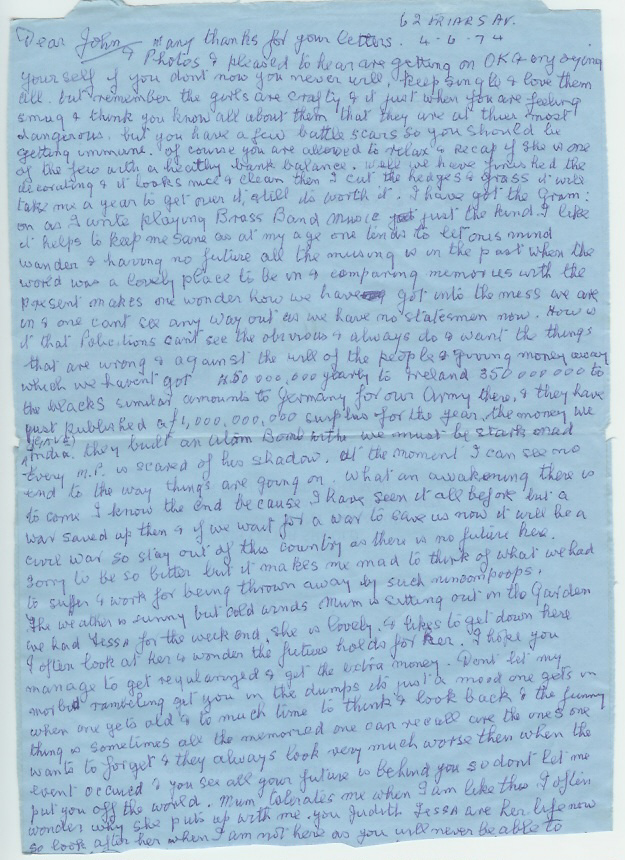 62 FRIARS AV.
Dear John, Many thanks for your letters. 4-6-74
& Photos & pleased to hear are getting on OK & enjoying
yourself if you dont now you never will, keep single & love them
all. but remember the girls are crafty & it just when you are feeling
smug & think you know all about them that they are at their most
dangerous. but you have a few battle scars so you should be
getting immune. Of course you are allowed to relax & recap if she is one
of the few with a healthy bank balance. Well we have finished the
decorating & it looks nice & clean then I cut the hedges & grass it will
take me a year to get over it still its worth it. I have got the Gram:
on as I write playing Brass Band Music just the kind I like
it helps to keep me sane as at my age one tends to let ones mind
wander & having no future all the musing is in the past when the
world was a lovely place to be in & comparing memories with the
present makes one wonder how we have got into the mess we are
in & one cant see any way out as we have no statesmen now. How is
it that Politions cant see the obvious & always do & want the things
that are wrong & against the will of the people & giving money away
which we havent got 450 000,000 yearly to Ireland 350 000 000 to
the blacks similar amounts to Germany for our Army there, & they have
just published a £1,000,000,000 surplus for the year, the money we
India. they built an Atom Bomb with we must be stark mad
Every M.P. is scared of his shadow. At the moment I can see no
end to the way things are going on. What an awakening there is
to come I know the end because I have seen it all before but a
war saved up then & if we wait for a war to save us now it will be a
civil war so stay out of this country as there is no future here.
Sorry to be so bitter but it makes me mad to think of what we had
to suffer & work for being thrown away by such nincompoops.
The weather is sunny but cold winds Mum is sitting out in the Garden
we had Tessa for the week end, she is lovely. & likes to get down here
I often look at her & wonder the future holds for her. I hope you
manage to get regularized & get the extra money. Dont let my
morbid rambling get you in the dumps its just a mood one gets in
when one gets old & to much time to think & look back & the funny
thing is sometimes all the memories one can recall are the ones one
wants to forget & they always look very much worse then when the
event occured & you see all your future is behind you so dont let me
put you off the world. Mum tolerates me when I am like this I often
wonder why she puts up with me. you Judith Tessa are her life now
so look after her when I am not here as you will never be able to